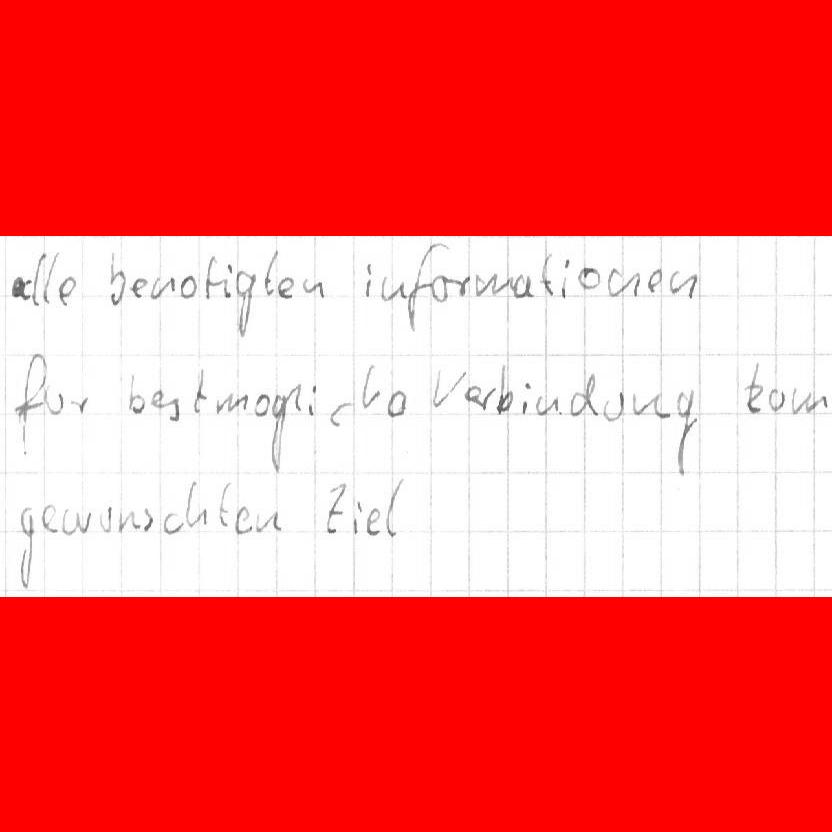 alle benotigten informationen
fur bestmogliche Verbindung zum
gewunschten Ziel